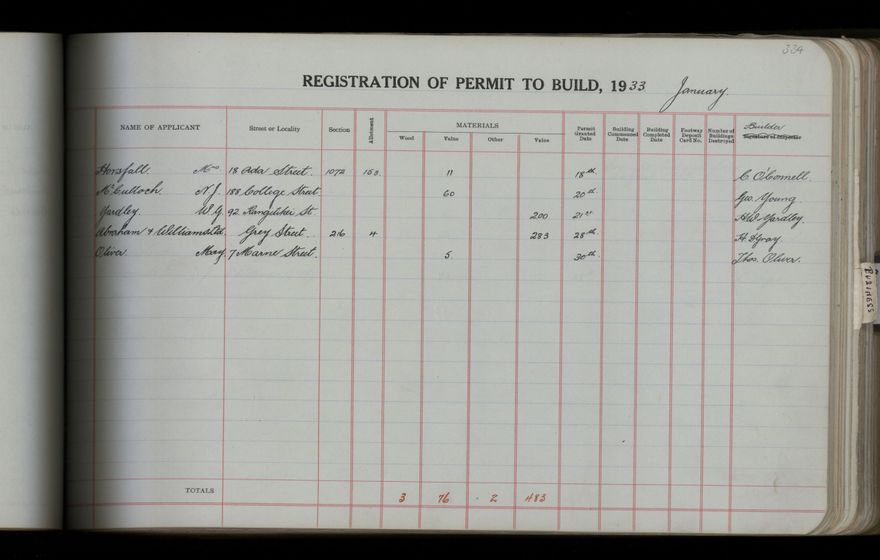 334
REGISTRATION OF PERMIT TO BUILD, 1933 January.
NAME OF APPLICANT Street or Locality Section Allotment MATERIALS Wood Value Other Value Permit Granted Date Building Commenced Date Building Completed Date Footway Deposit Card No. Number of Buildings Destroyed Builder Signature of Inspector
Horsfall. Mrs 18 Ada Street. 1072 153. 11 18th C O'Connell.
McCulloch. N.J. 188 College Street 60 20th Geo. Young.
Yardley. W.G. 92. Rangitikei St. 200 21st Yardley.
Abraham & Williams Ltd. Grey Street. 216 4 283 28th H. Gray.
Oliver Mary. 7 Marne Street. 5. 30th Thos. Oliver.
TOTALS 3 76 2 483
BUSINESS